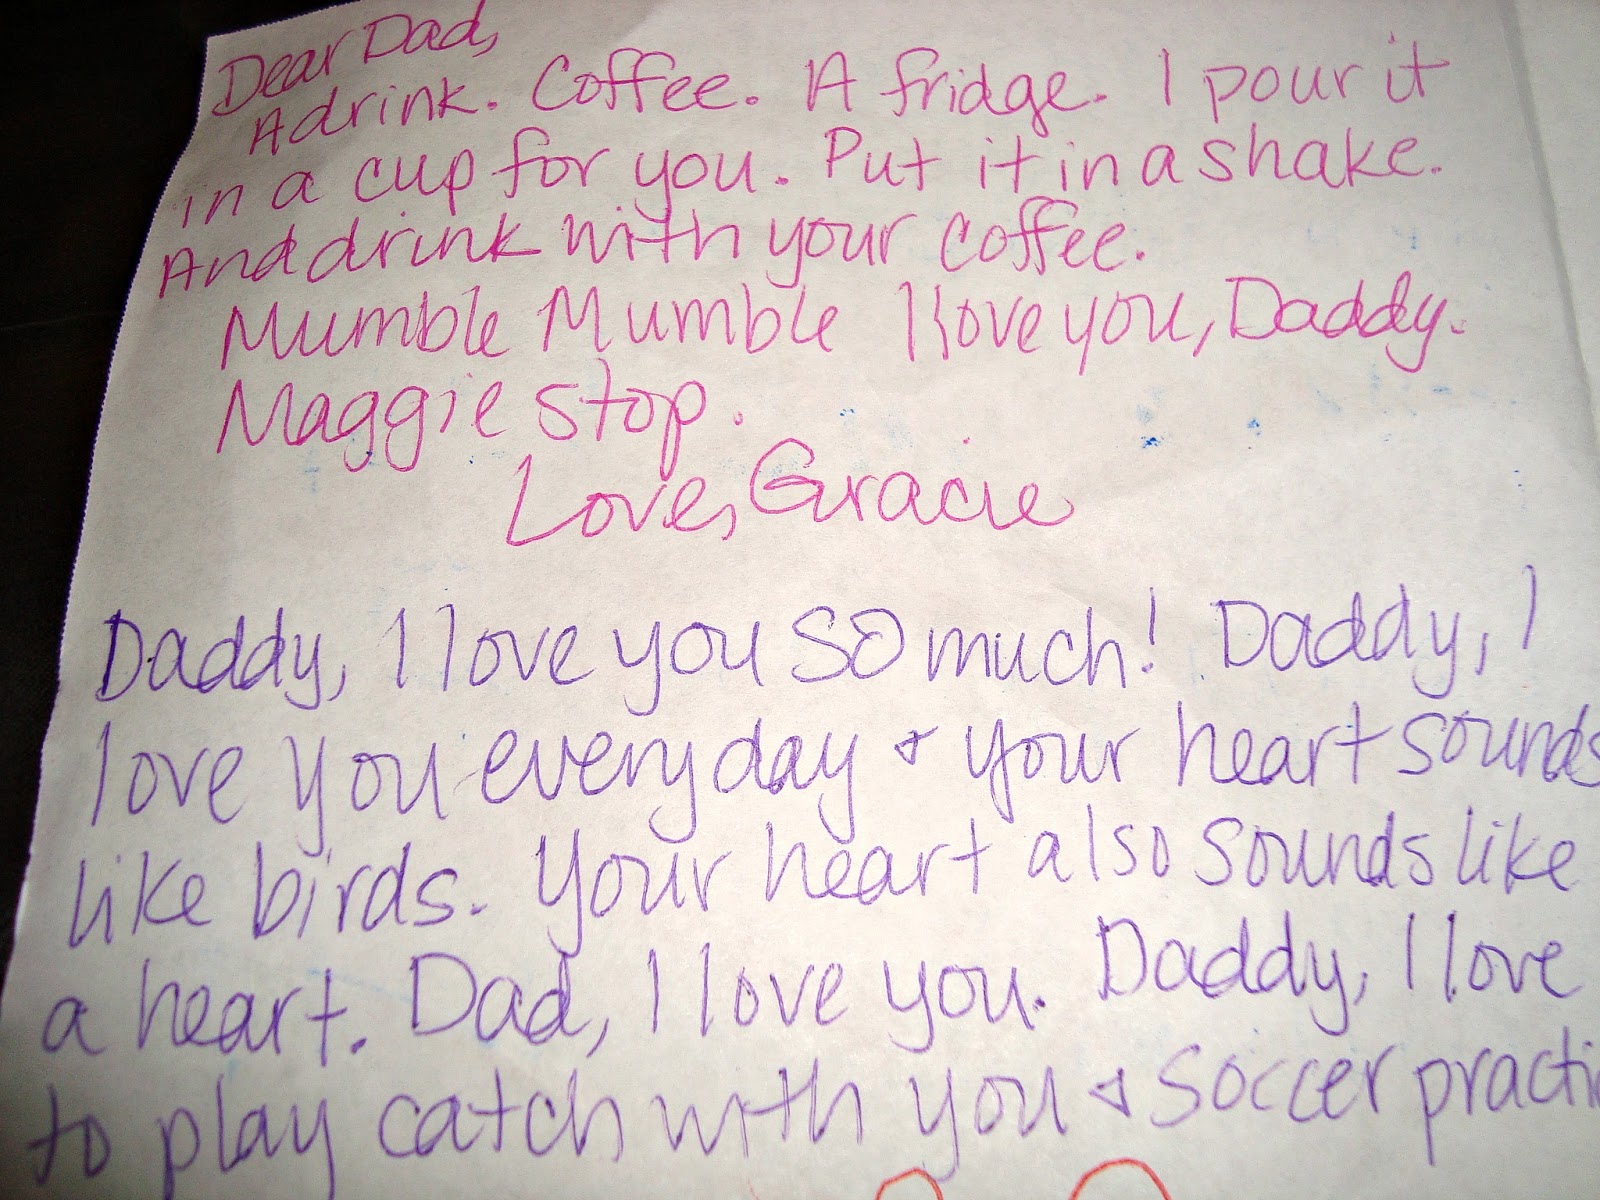 Dear Dad,
A drink. Coffee. A fridge. I pour it
in a cup for you. Put it in a shake.
And drink with your coffee.
Mumble Mumble I love you, Daddy.
Maggie stop.
Love, Gracie
Daddy, I love you SO much! Daddy, I
love you everyday & your heart sounds
like birds. Your heart also sounds like
a heart. Dad, I love you. Daddy, I love
to play catch with you & soccer practi